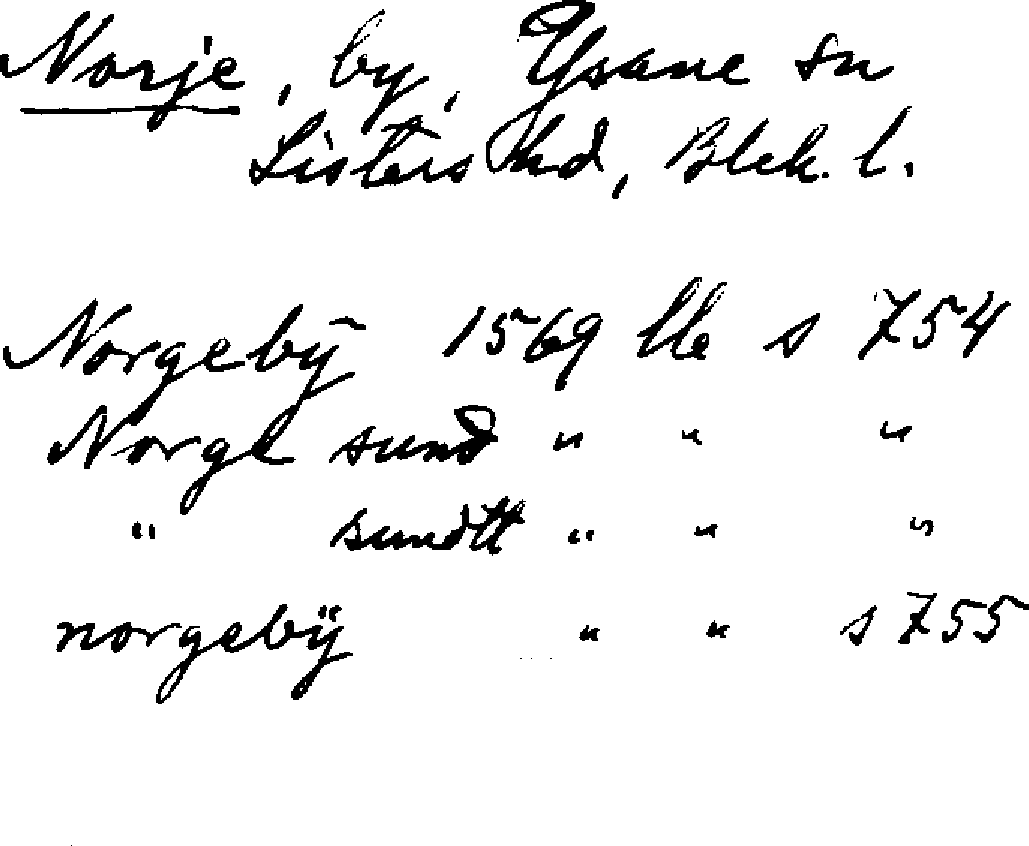 Norje, by, Ysane sn
Listers hd, Blek. l.
Norgebÿ 1569 lle s 754
Norge sund " " "
" sundtt " " "
norgebÿ " " s 755